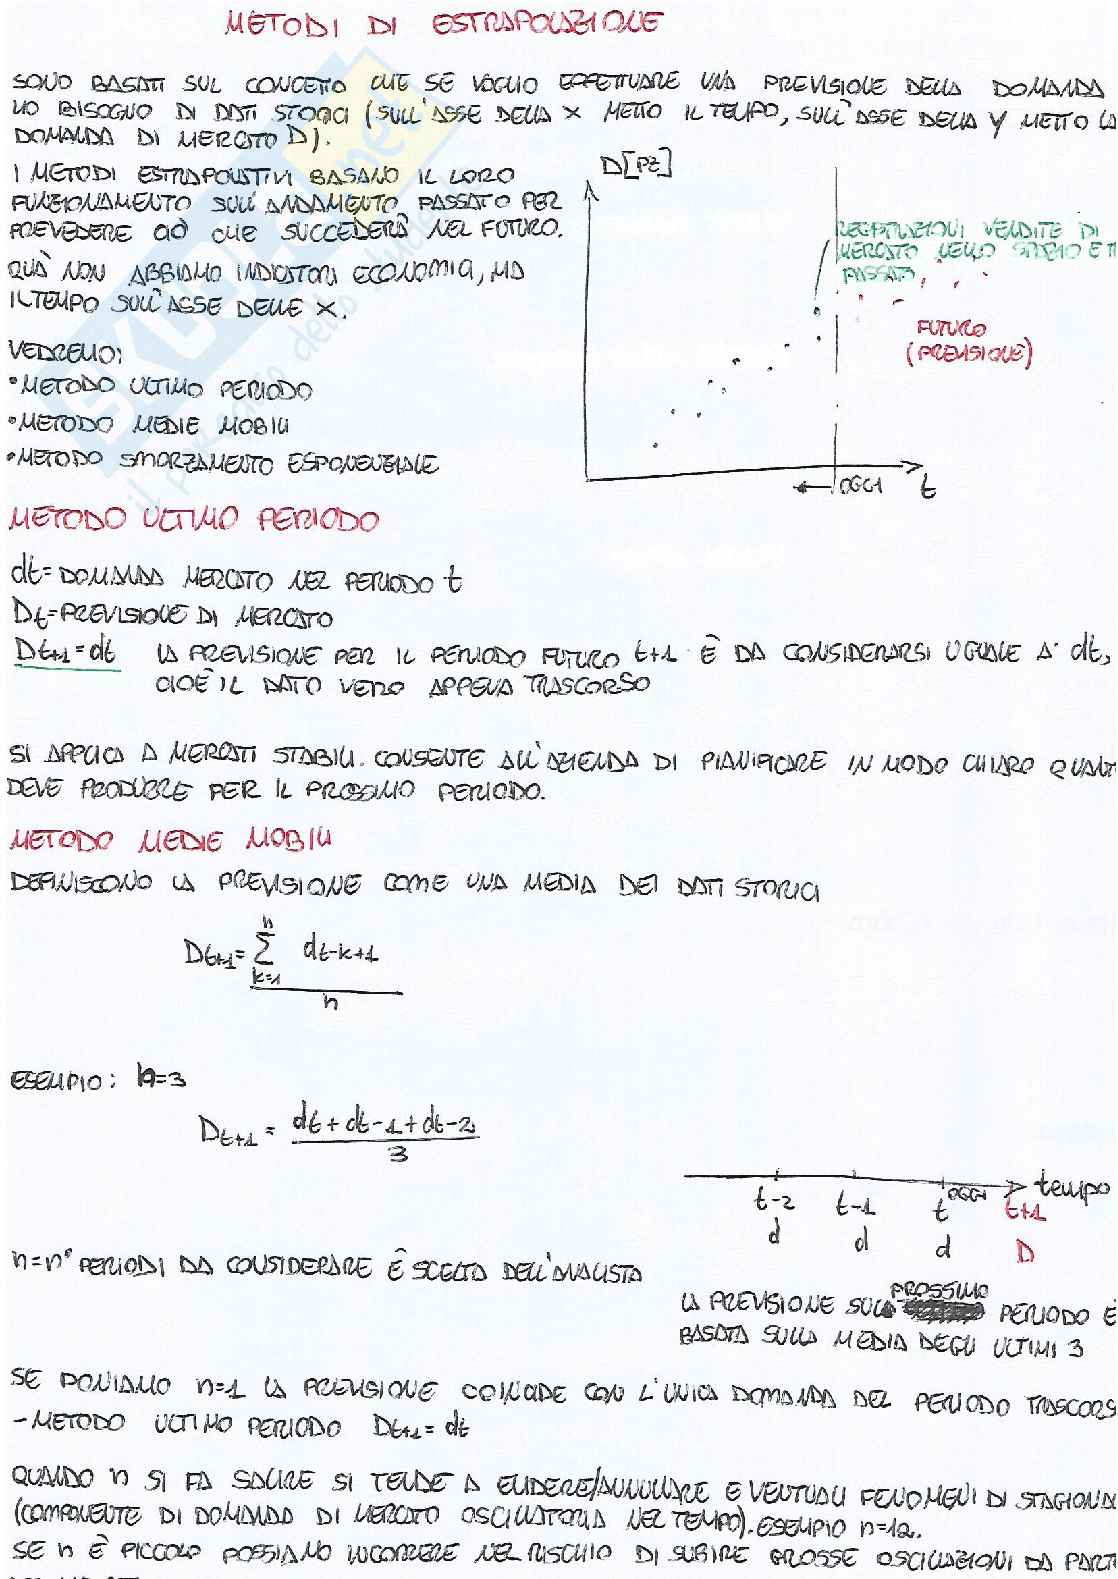 METODI DI ESTRAPOLAZIONE
SONO BASATI SUL CONCETTO CHE SE VOGLIO EFFETTUARE UNA PREVISIONE DELLA DOMANDA
HO BISOGNO DI DATI STORICI (SULL'ASSE DELLA X METTO IL TEMPO, SULL'ASSE DELLA Y METTO LA
DOMANDA DI MERCATO D).
I METODI ESTRAPOLATIVI BASANO IL LORO
FUNZIONAMENTO SULL'ANDAMENTO PASSATO PER
PREVEDERE CIÒ CHE SUCCEDERÀ NEL FUTURO.
QUÀ NON ABBIAMO INDICATORI ECONOMICI, MA
IL TEMPO SULL'ASSE DELLE X.
D[PZ]
VENDITE DI
MERCATO NELLO SPAZIO E
PASSATI
FUTURO
(PREVISIONE)
OGGI
t
VEDREMO:
•METODO ULTIMO PERIODO
•METODO MEDIE MOBILI
•METODO SMORZAMENTO ESPONENZIALE
METODO ULTIMO PERIODO
dt=DOMANDA MERCATO NEL PERIODO t
Dt=PREVISIONE DI MERCATO
Dt+1=dt LA PREVISIONE PER IL PERIODO FUTURO t+1 È DA CONSIDERARSI UGUALE A dt,
CIOÈ IL DATO VERO APPENA TRASCORSO
SI APPLICA A MERCATI STABILI. CONSENTE ALL'AZIENDA DI PIANIFICARE IN MODO CHIARO QUANT
DEVE PRODURRE PER IL PROSSIMO PERIODO.
METODO MEDIE MOBILI
DEFINISCONO LA PREVISIONE COME UNA MEDIA DEI DATI STORICI
n
Dt+1= Σ dt-k+1
k=1
n
ESEMPIO: n=3
Dt+1 = dt + dt-1 + dt-2
3
tempo
t-2 t-1 t OGGI t+1
d d d D
n=n° PERIODI DA CONSIDERARE È SCELTA DELL'ANALISTA
LA PREVISIONE SUL PROSSIMO PERIODO È
BASATA SULLA MEDIA DEGLI ULTIMI 3
SE PONIAMO n=1 LA PREVISIONE COINCIDE CON L'UNICA DOMANDA DEL PERIODO TRASCORS
-METODO ULTIMO PERIODO Dt+1= dt
QUANDO n SI FA SALIRE SI TENDE A ELIDERE/ANNULLARE EVENTUALI FENOMENI DI STAGIONA
(COMPONENTE DI DOMANDA DI MERCATO OSCILLATORIA NEL TEMPO). ESEMPIO n=12.
SE n È PICCOLO POSSIAMO INCORRERE NEL RISCHIO DI SUBIRE GROSSE OSCILLAZIONI DA PART